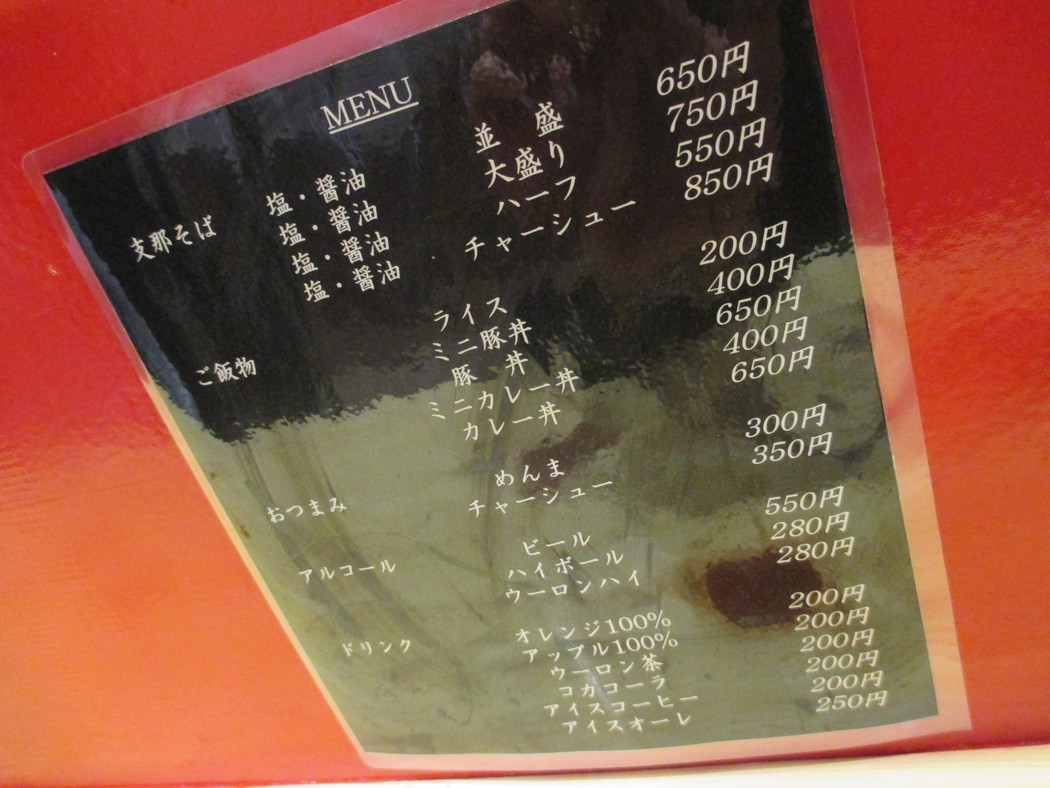 MENU
支那そば 塩・醤油 並 盛 650円
塩・醤油 大盛り 750円
塩・醤油 ハーフ 550円
塩・醤油 チャーシュー 850円
ご飯物 ライス 200円
ミニ豚丼 400円
豚 丼 650円
ミニカレー丼 400円
カレー丼 650円
おつまみ めんま 300円
チャーシュー 350円
アルコール ビール 550円
ハイボール 280円
ウーロンハイ 280円
ドリンク オレンジ100% 200円
アップル100% 200円
ウーロン茶 200円
コカコーラ 200円
アイスコーヒー 200円
アイスオーレ 250円